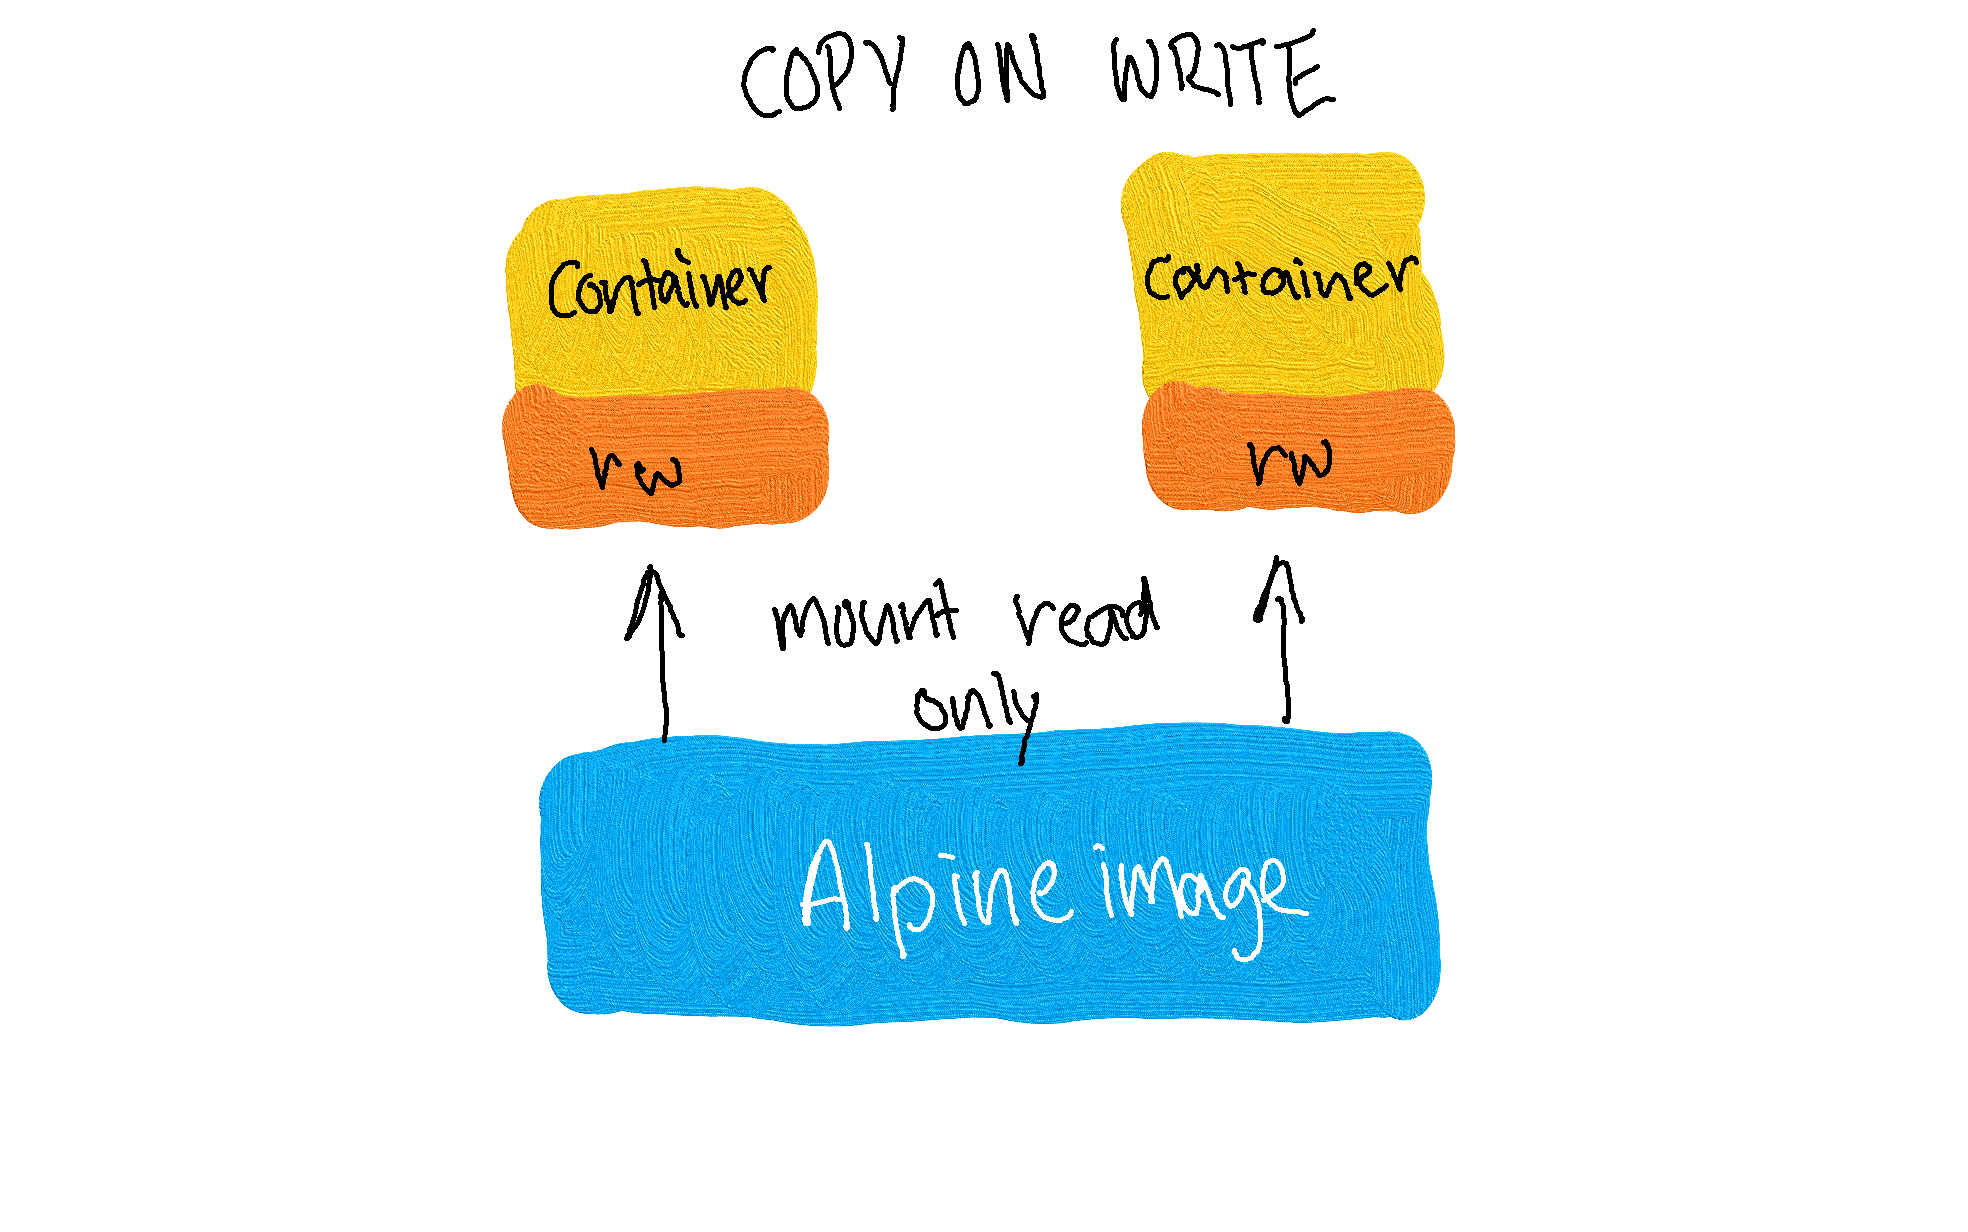 COPY ON WRITE
Container
container
rw
rw
mount read
only
Alpine image